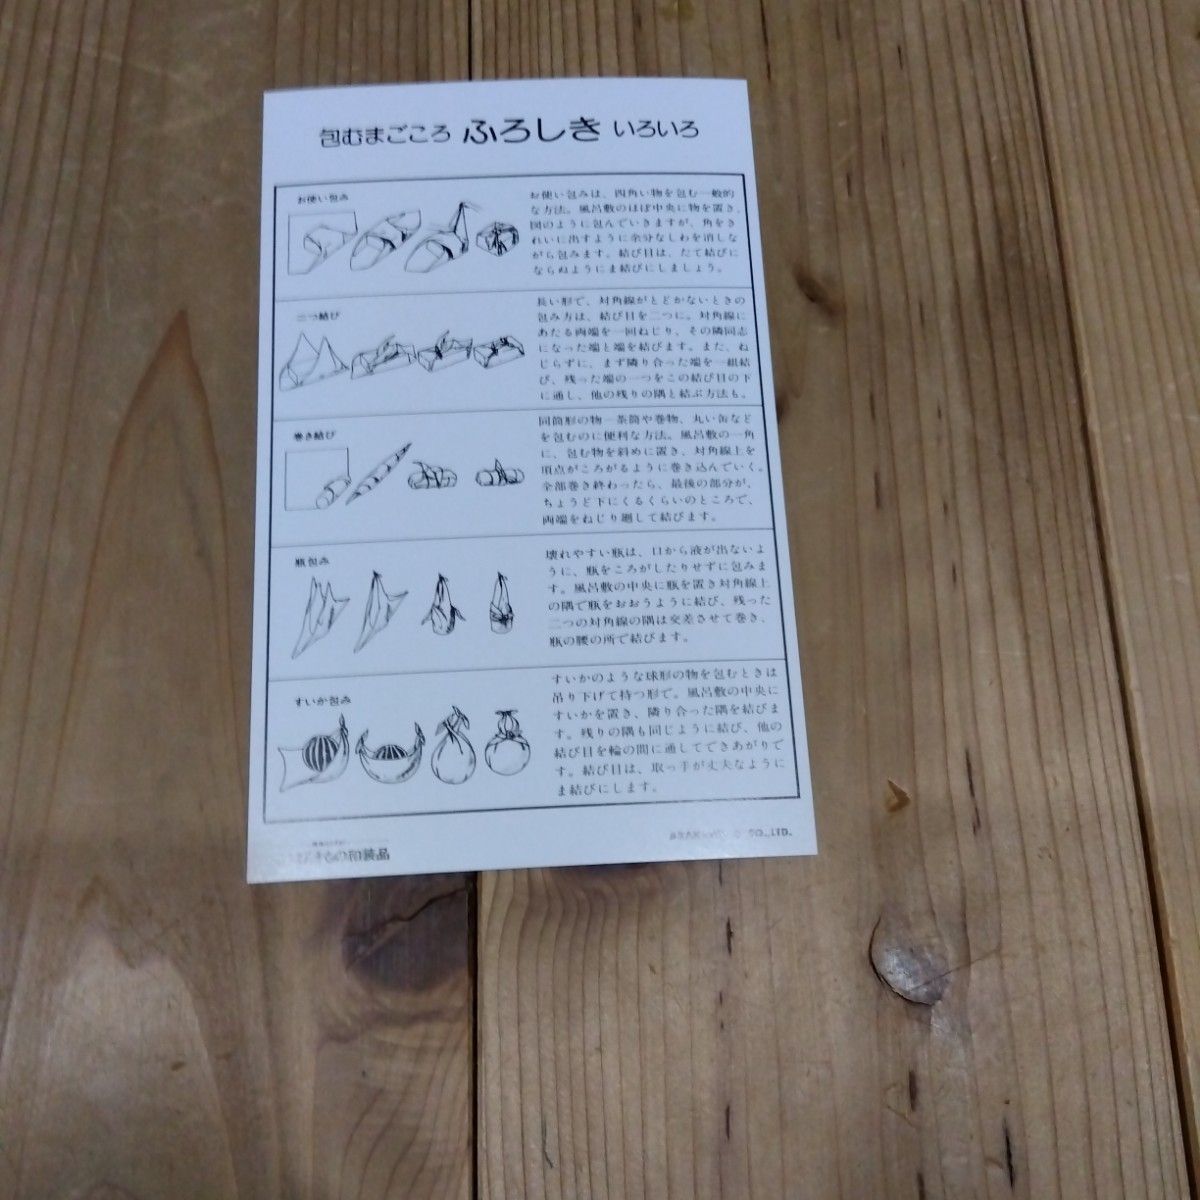 包むまごころ ふろしき いろいろ
お使い包み
お使い包みは、四角い物を包む一般的
な方法。風呂敷のほぼ中央に物を置き、
図のように包んでいきますが、角をき
れいに出すように余分なしわを消しな
がら包みます。結び目は、たて結びに
ならぬようにま結びにしましょう。
二つ結び
長い形で、対角線がとどかないときの
包み方は、結び目を二つに。対角線に
あたる両端を一回ねじり、その隣同志
になった端と端を結びます。また、ね
じらずに、まず隣り合った端を一組結
び、残った端の一つをこの結び目の下
に通し、他の残りの隅と結ぶ方法も。
巻き結び
同筒形の物―茶筒や巻物、丸い缶など
を包むのに便利な方法。風呂敷の一角
に、包む物を斜めに置き、対角線上を
頂点がころがるように巻き込んでいく。
全部巻き終わったら、最後の部分が、
ちょうど下にくるくらいのところで、
両端をねじり廻して結びます。
瓶包み
壊れやすい瓶は、口から液が出ないよ
うに、瓶をころがしたりせずに包みま
す。風呂敷の中央に瓶を置き対角線上
の隅で瓶をおおうように結び、残った
二つの対角線の隅は交差させて巻き、
瓶の腰の所で結びます。
すいか包み
すいかのような球形の物を包むときは
吊り下げて持つ形で。風呂敷の中央に
すいかを置き、隣り合った隅を結びま
す。残りの隅も同じように結び、他の
結び目を輪の間に通してできあがりで
す。結び目は、取っ手が丈夫なように
ま結びにします。
の和装品
CO.,LTD.